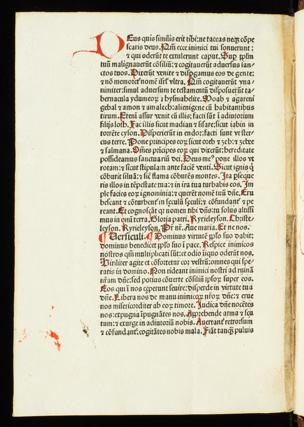 Deus quis similis erit tibi: ne taceas neq3 cōpe
scaris deus. Qm̄ ecce inimici tui sonuerunt:
et qui oderūt te extulerunt caput. Sup ipsm̄
tuū malignauerūt cōsiliū: et cogitauerūt aduersus san
ctos tuos. Dixerūt venite et disp̄gamus eos de gente:
et nō memoret̄ nomē isrl̄ vltra. Qm̄ cogitauerūt vna
nimiter: simul aduersum te testamentū disposuerūt ta
bernacula ydumeoꝝ et hysmahelite. Moab et agareni
gebal et amon et amalech: alienigene cū habitantibus
tirum. Etenī assur venit cū illis: facti sūt ī adiutoriū
filijs loth. Fac illis sicut madian et sisare: sicut iabin in
torrēte cyson. Disperierūt in endor: facti sunt vt ster
cus terre. Pone principes eoꝝ sicut oreb et zeb et zebee
et salmana. Om̄es p̄ncipes eoꝝ qui dixerūt: hereditate
possideamus sanctuariū dei. Deus me⁹ pone illos vt
rotam: et sicut stipulam ante faciē venti. Sicut ignis q̄
cōburit siluā: et sic̄ flāma cōburēs mōtes. Ita p̄seque
ris illos in tēpestate tua: et in ira tua turbabis eos. Im
ple facies eoꝝ ignominia: et querēt nomē tuū dn̄e. Eru
bescant et cōturbent̄ in seculū seculi: et cōfundant̄ et pe
reant. Et cognoscāt q̄ nomen tibi dn̄s: tu solus altissi
mus in om̄i terra. Gloria patri. Kyrieleyson. Christe-
leyson. Kyrieleyson. Pr̄ nr̄. Aue maria. Et ne nos.
Versiculi. Dominus virtutē pl̄si suo dabit:
dominus benedicet pl̄o suo ī pace. Respice inimicos
nostros qm̄ multiplicati sūt: et odio iniquo oderūt nos.
Viriliter agite et cōfortetur cor vestrū: omnes qui spe-
ratis in domino. Non rideant inimici nostri ad ruinā
nr̄am dn̄e: sed potius cōuerte cōsiliū ip̄soꝝ super eos.
Eos qui ī nos cep̄erunt seuire: disperde in virtute tua
dn̄e. Libera nos de manu inimicoꝝ nr̄oꝝ dn̄e: et crue
nos misericorditer ab eoꝝ timore. Iudica dn̄e nocētes
nos: et expugna īpugnātes nos. Apprehende arma et scu
tum: et exurge in adiutoriū nobis. Auertant̄ retrorsum
et cōfundant̄: cogitātes nobis mala. Fiāt tanq̄ puluis